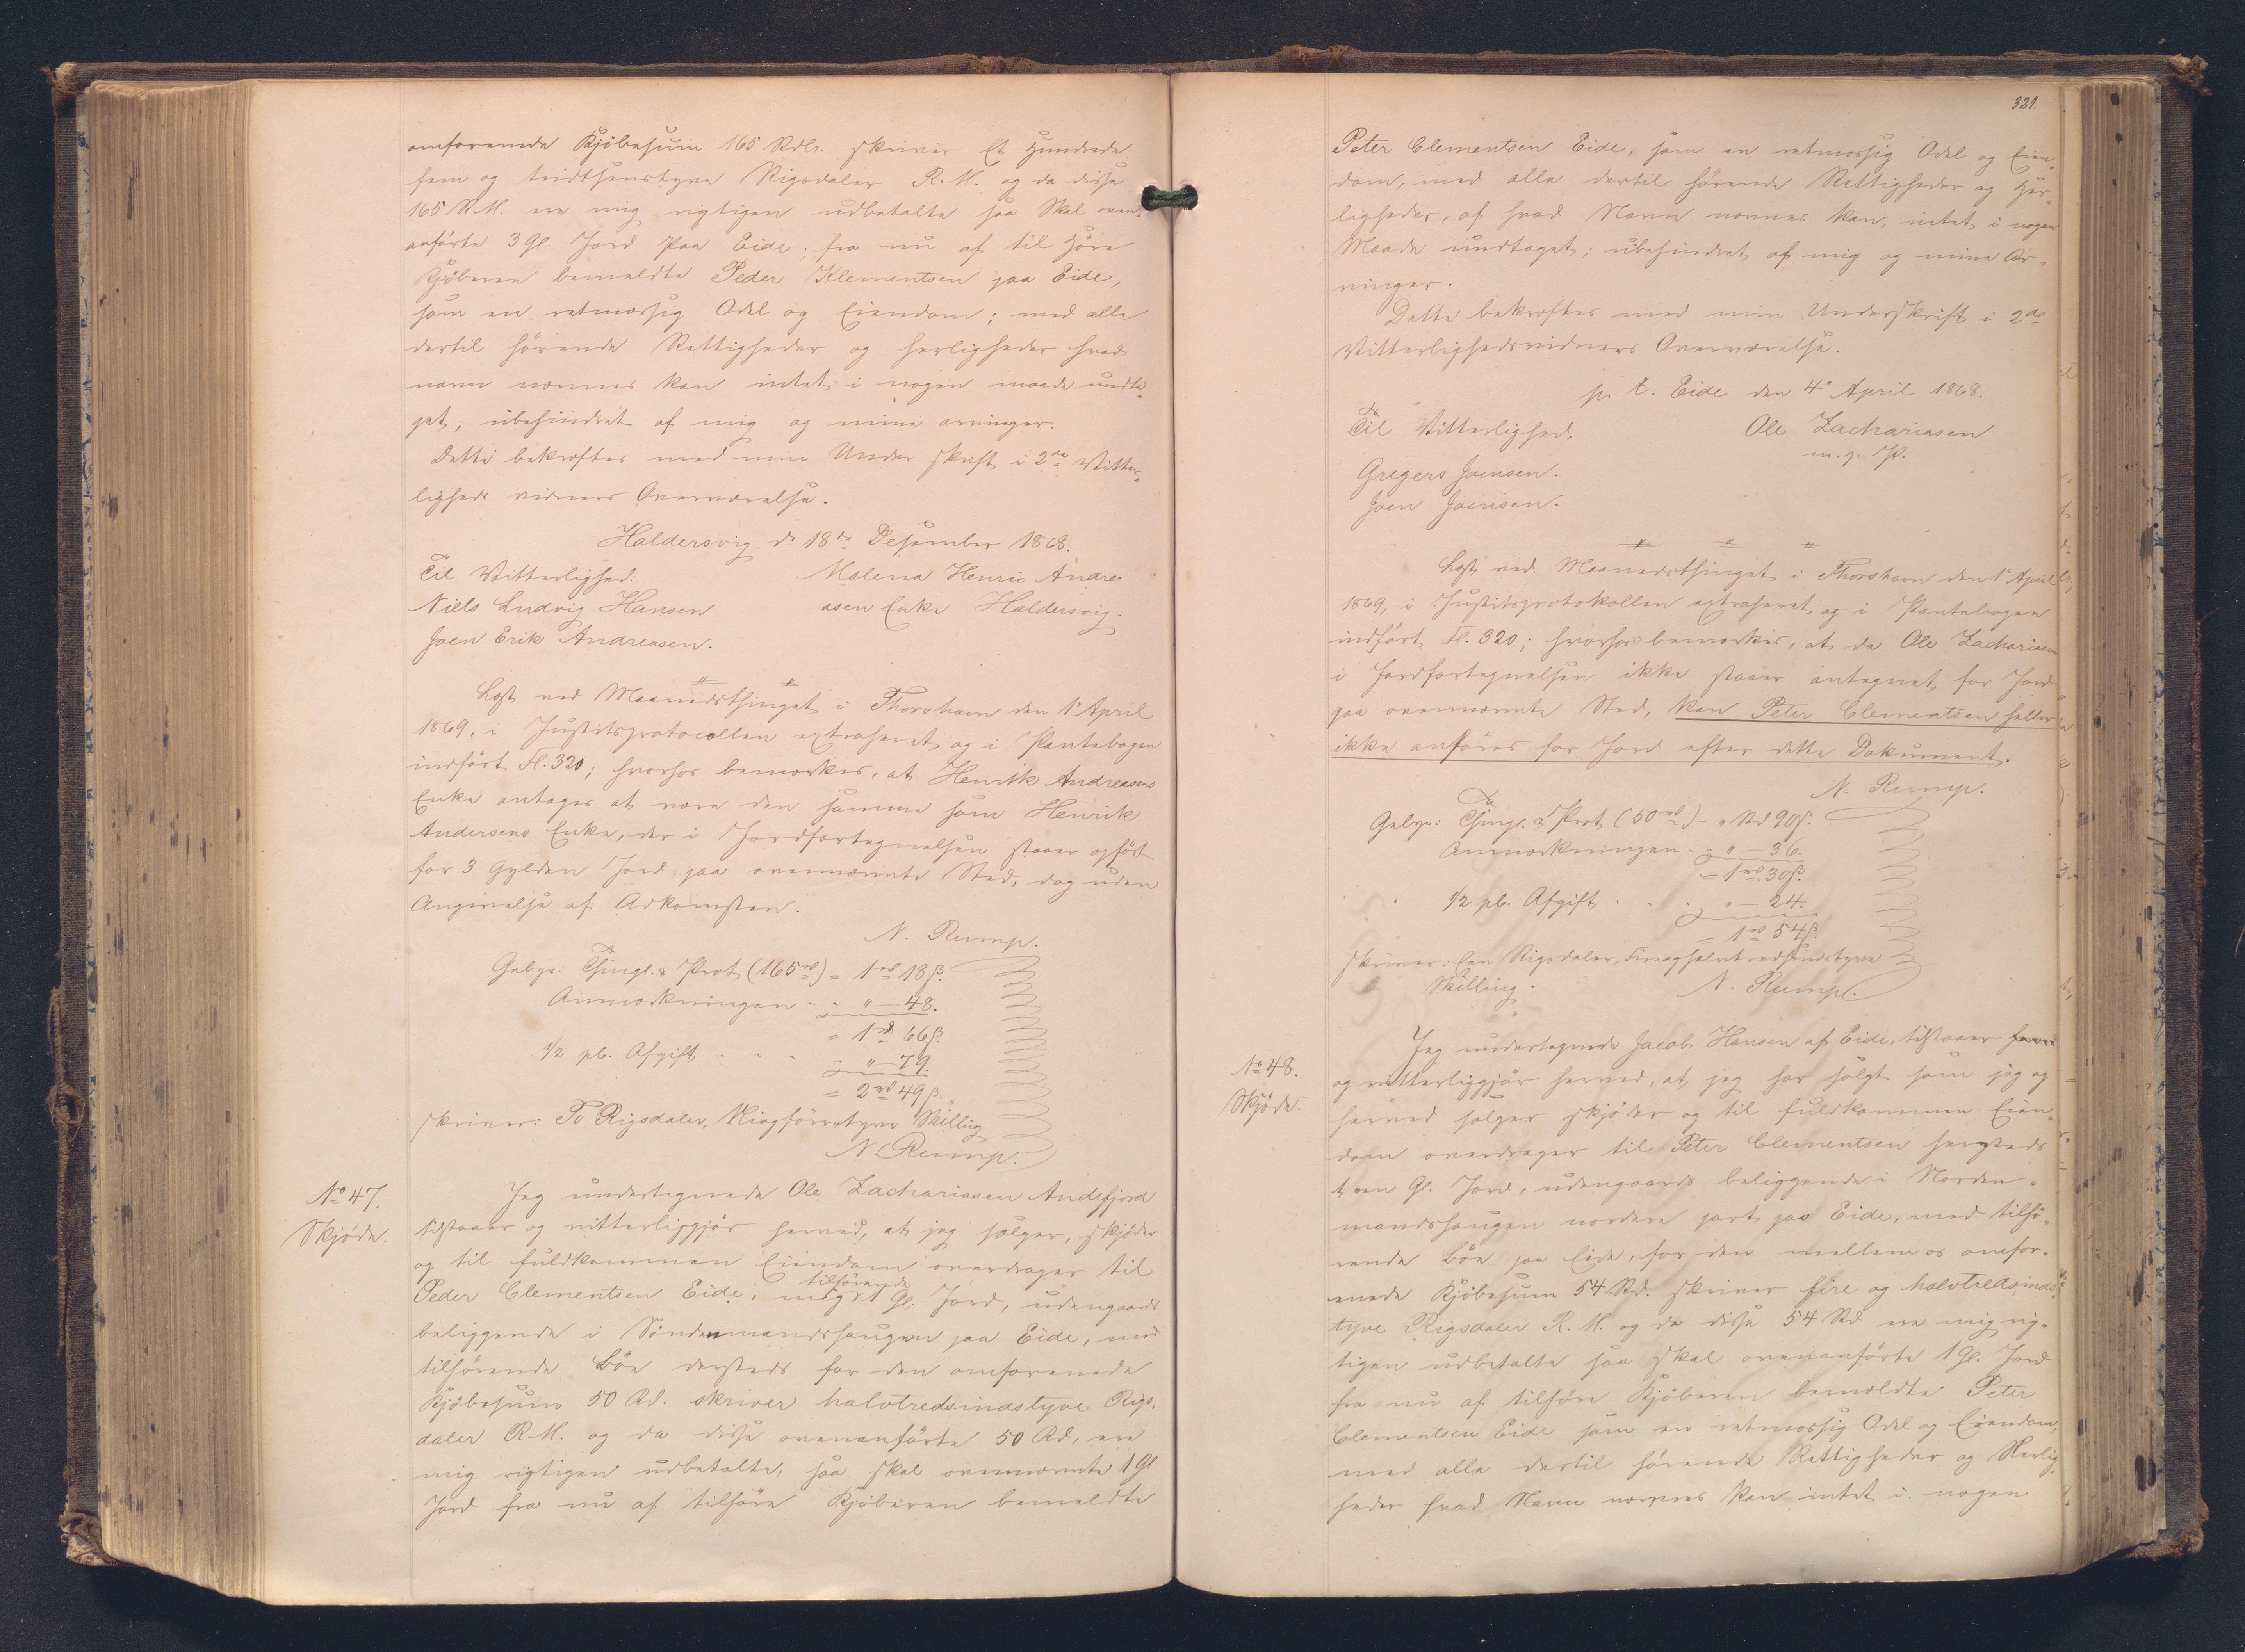 omforenede Kjöbesum 165 Rdlr. skriver Et Hundrede
fem og tredsenstyve Rigsdaler R. M. og da disse
165 R.M. ere mig rigtigen udbetalte saa Skal oven-
anförte 3 Gl. Jord paa Eide; fra nu af til Höre
Kjöberen bemeldte Peder Klementsen paa Eide,
som en retmæssig Odel og Eiendom; med alle
dertil hörende Rettigheder og herligheder hvad
navn nævnes kan intet i nogen maade undta-
get; ubehindret af mig og mine arvinger.
Dette bekræftes med min Under skrift i 2de Vitter-
ligheds vidners Overværelse.
Haldersvig d. 18de Desember 1868.
Til Vitterlighed: Malena Henric Andre
Niels Ludvig Hansen asen Enke Haldersvig.
Joen Erik Andreasen.
Læst ved Maanedsthinget i Thorshavn den 1' April
1869, i Justitsprotocollen extraheret og i Pantebogen
indfört Fl. 320; hvorhos bemærkes, at Henrik Andreasens
Enke antages at være den samme som Henrik
Andersens Enke, der i Jordfortegnelsen staaer opfört
for 3 Gylden Jord paa ovennævnte Sted, dog uden
Angivelse af Adkomsten.
N. Rump.
Gebyr: Thingl. & Prot (165 rd) = 1 rd 18 ß.
Anmærkningen - - " — 48.
= 1 rd 66 ß.
1/2 pC. Afgift - - - " — 79.
= 2 rd 49 ß.
skriver: To Rigsdaler, Niogförretyve Skilling
N. Rump.
No 47.
Skjöde.
Jeg undertegnede Ole Zachariasen Andefjord
tilstaaer og vitterliggjör herved, at jeg sælger, skjöder
og til fuldkommen Eiendom overdrager til
tilhörende
Peder Clementsen Eide, mig 1 Gl. Jord, udengaards
beliggende i Söndenmandshaugen paa Eide, med
tilhörende Böe dersteds for den omforenede
Kjöbesum 50 Rd. skriver halvtredsindstyve Rigs-
daler R.M. og da disse ovenanförte 50 Rd. ere
mig rigtigen udbetalte, saa skal ovennævnte 1 Gl
Jord fra nu af tilhöre Kjöberen bemeldte
321.
Peter Clementsen Eide, som en retmæssig Odel og Eien-
dom, med alle dertil hörende Rettigheder og Her-
ligheder, af hvad Navn nævnes kan, intet i nogen
Maade undtaget; ubehindret af mig og mine Ar-
vinger.
Dette bekræftes med min Underskrift i 2de
Vitterlighedsvidners Overværelse.
p. t. Eide den 4' April 1868.
Til Vitterlighed. Ole Zachariasen
m. p.
Gregers Joensen.
Joen Joensen.
Læst ved Maanedsthinget i Thorshavn den 1' April
1869, i Justitsprotokollen extraheret og i Pantebogen
indfört Fl. 320; hvorhos bemærkes, at da Ole Zachariasen
i Jordfortegnelsen ikke staaer antegnet for Jord
paa ovennævnte Sted, kan Peter Clementsen heller
ikke anföres for Jord efter dette Dokument.
N. Rump.
Gebyr: Thingl. & Prot (50 rd) - " Rd 90 ß.
Anmærkningen - - " — 36.
= 1 rd 30 ß.
1/2 pC. Afgift - - - " — 24.
= 1 rd 54 ß.
skriver: Een Rigsdaler, Fireoghalvtredsindstyve
Skilling. N. Rump.
No 48.
Skjöde.
Jeg undertegnede Jacob Hansen af Eide, tilstaaer
og vitterliggjör herved, at jeg har solgt som jeg og
herved sælger skjöder og til fuldkommen Eien-
dom overdrager til Peter Clementsen hersteds
1 en Gl. Jord, udengaards beliggende i Norden-
mandshaugen nordere part paa Eide, med tilhö-
rende Böe paa Eide, for den mellem os omfor-
enede Kjöbesum 54 Rd. skriver fire og halvtredsinds-
tyve Rigsdaler R. M. og da disse 54 Rd ere mig rig-
tigen udbetalte saa skal ovenanförte 1 Gl. Jord
fra nu af tilhöre Kjöberen bemeldte Peter
Clementsen Eide som en retmæssig Odel og Eiendom,
med alle dertil hörende Rettigheder og Herlig-
heder hvad Navn nævnes kan intet i nogen